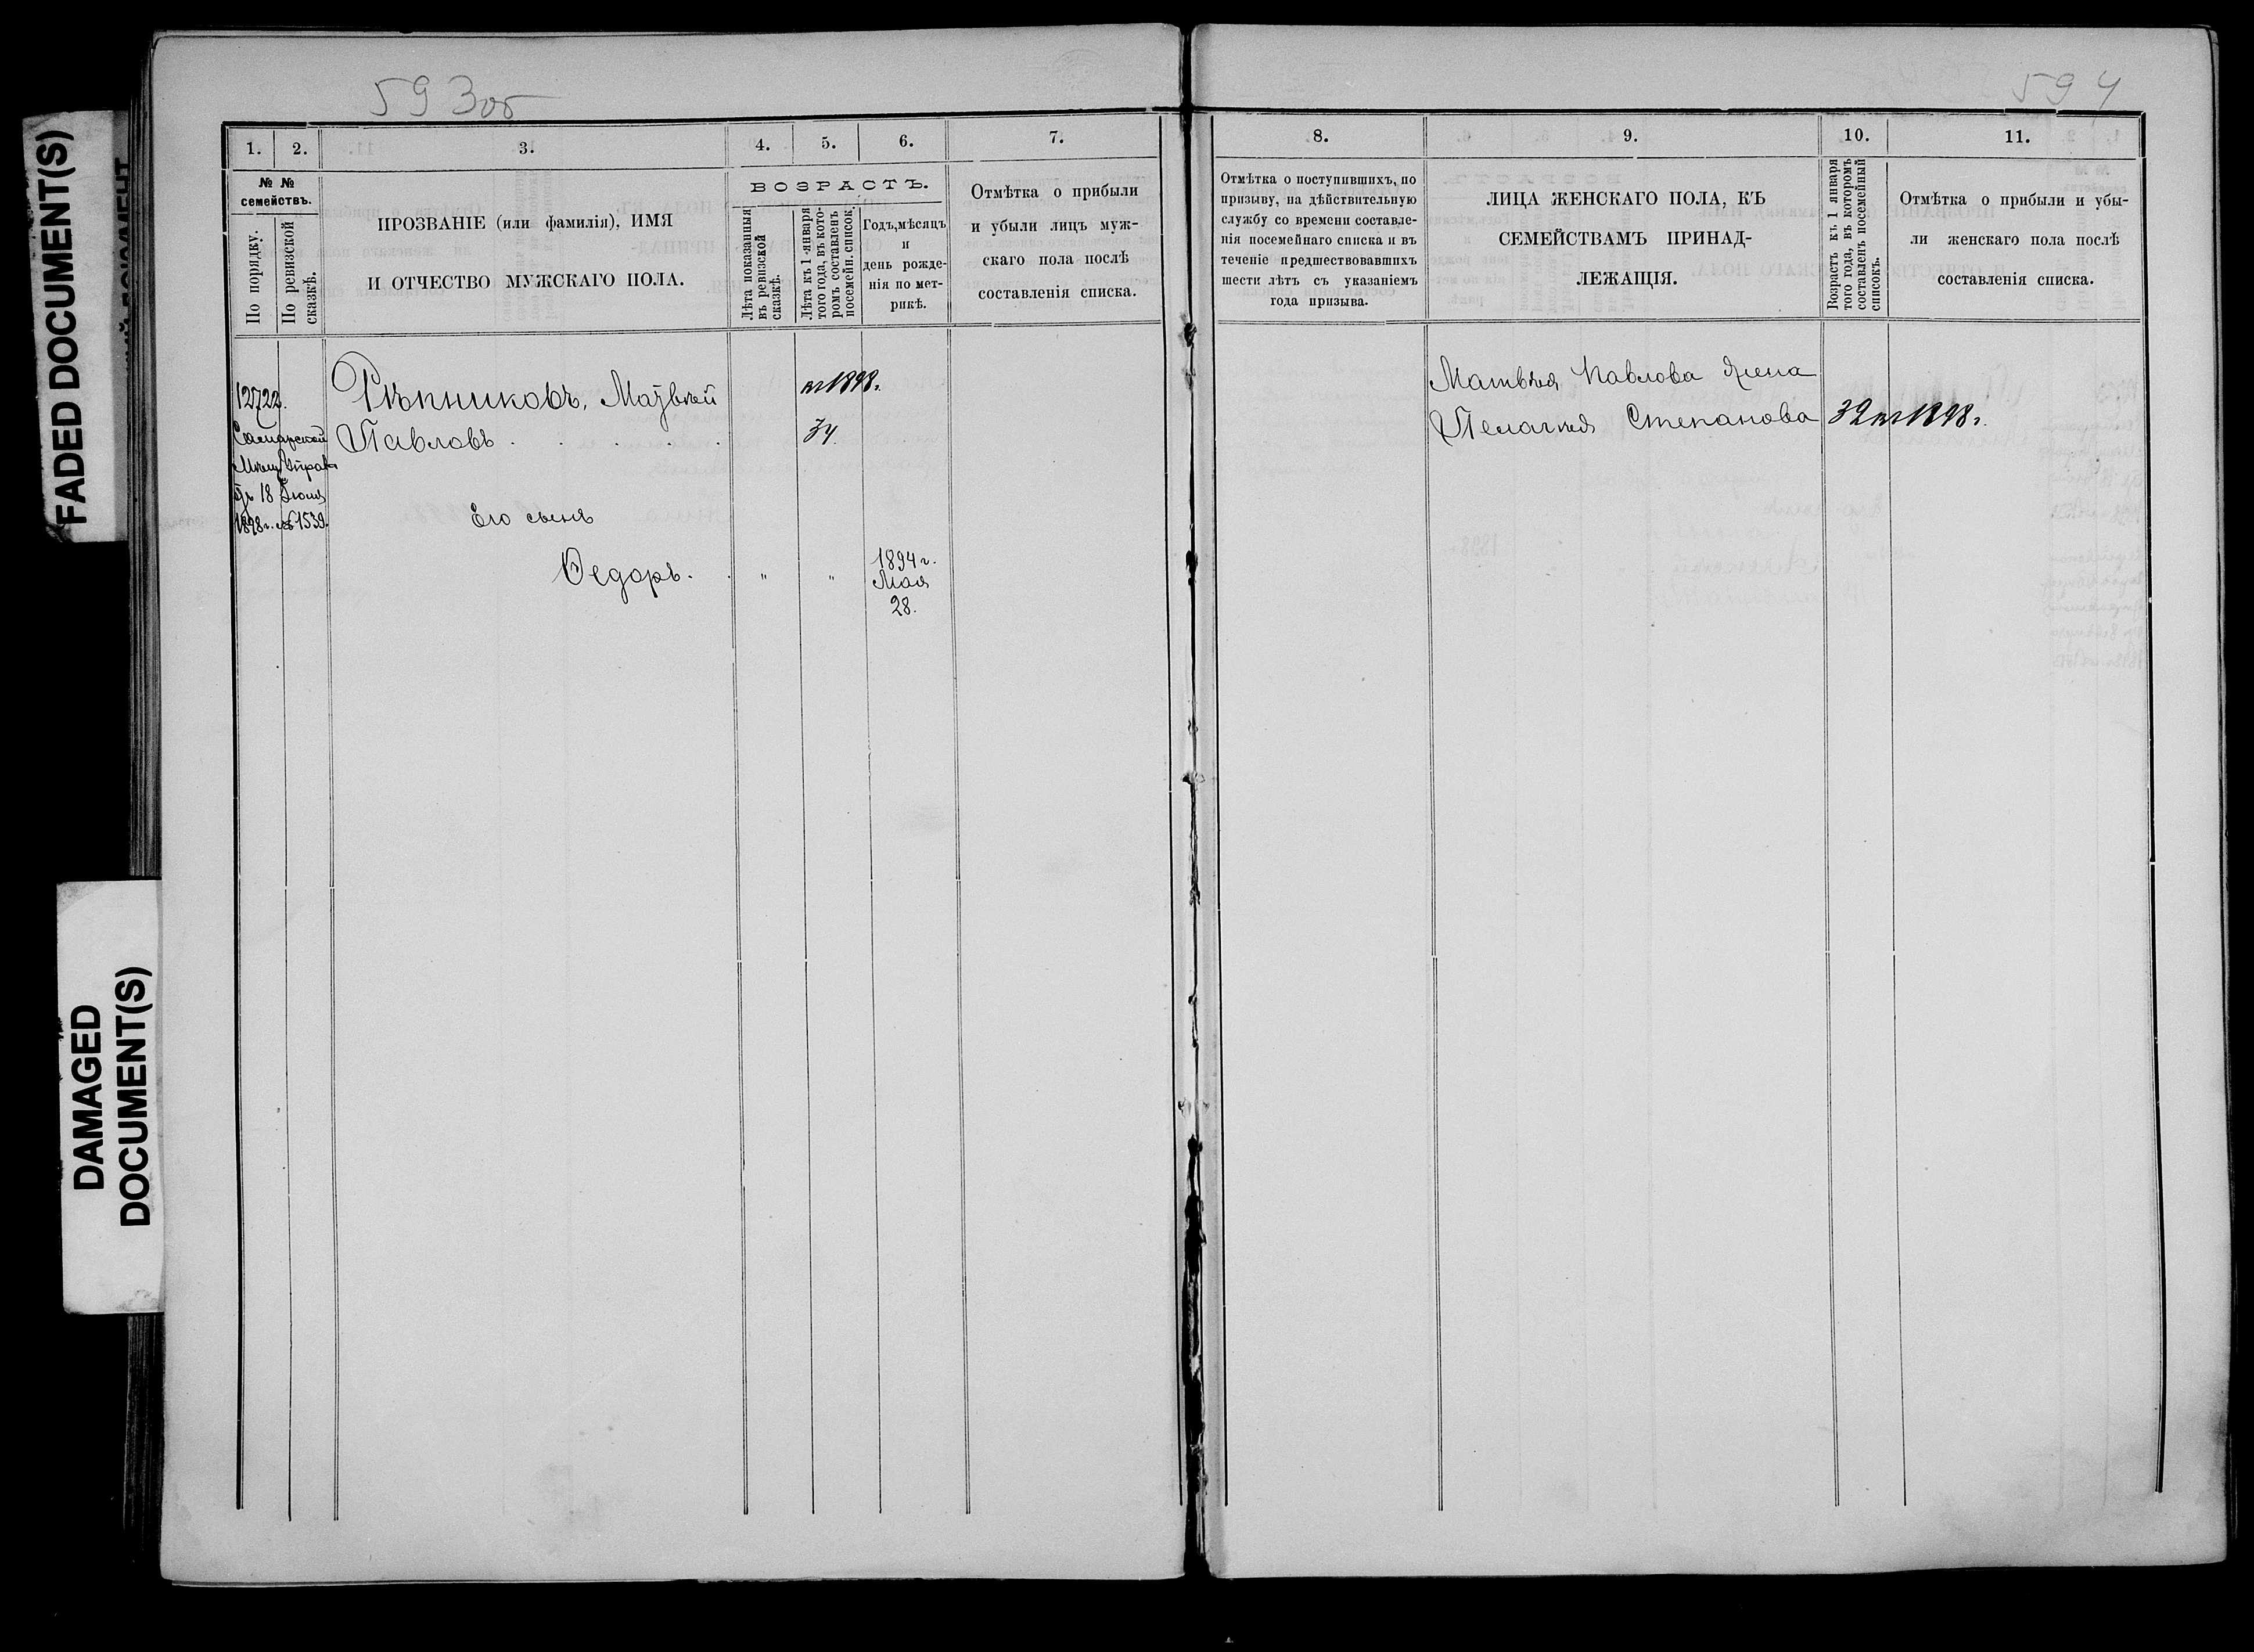 FADED DOCUMENT(S)
DAMAGED
DOCUMENT(S)
593об
1. 2. 3. 4. 5. 6. 7.
№ №
семействъ.
По порядку.
По ревизской
сказкѣ.
ПРОЗВАНІЕ (или фамилія), ИМЯ
И ОТЧЕСТВО МУЖСКАГО ПОЛА.
ВОЗРАСТЪ.
Лѣта показанныя
въ ревизской
сказкѣ.
Лѣта къ 1 января
того года, въ кото-
ромъ составленъ
посемейн. список.
Годъ, мѣсяцъ
и
день рожде-
нія по мет-
рикѣ.
Отмѣтка о прибыли
и убыли лицъ муж-
скаго пола послѣ
составленія списка.
12722.
Самарской
Мѣщ. Управ.
18 Іюня
1898 г. № 1539.
Рѣпниковъ, Матвѣй
Павловъ . . . . .
къ 1898 г.
34.
Его сынъ
Ѳедоръ. . " "
1894 г.
Мая
28.
594
8. 9. 10. 11.
Отмѣтка о поступившихъ, по
призыву, на дѣйствительную
службу со времени составле-
нія посемейнаго списка и въ
теченіе предшествовавшихъ
шести лѣтъ съ указаніемъ
года призыва.
ЛИЦА ЖЕНСКАГО ПОЛА, КЪ
СЕМЕЙСТВАМЪ ПРИНАД-
ЛЕЖАЩІЯ.
Возрастъ къ 1 января
того года, въ которомъ
составленъ посемейный
списокъ.
Отмѣтка о прибыли и убы-
ли женскаго пола послѣ
составленія списка.
Матвѣя Павлова жена
Пелагея Степанова 32 къ 1898 г.